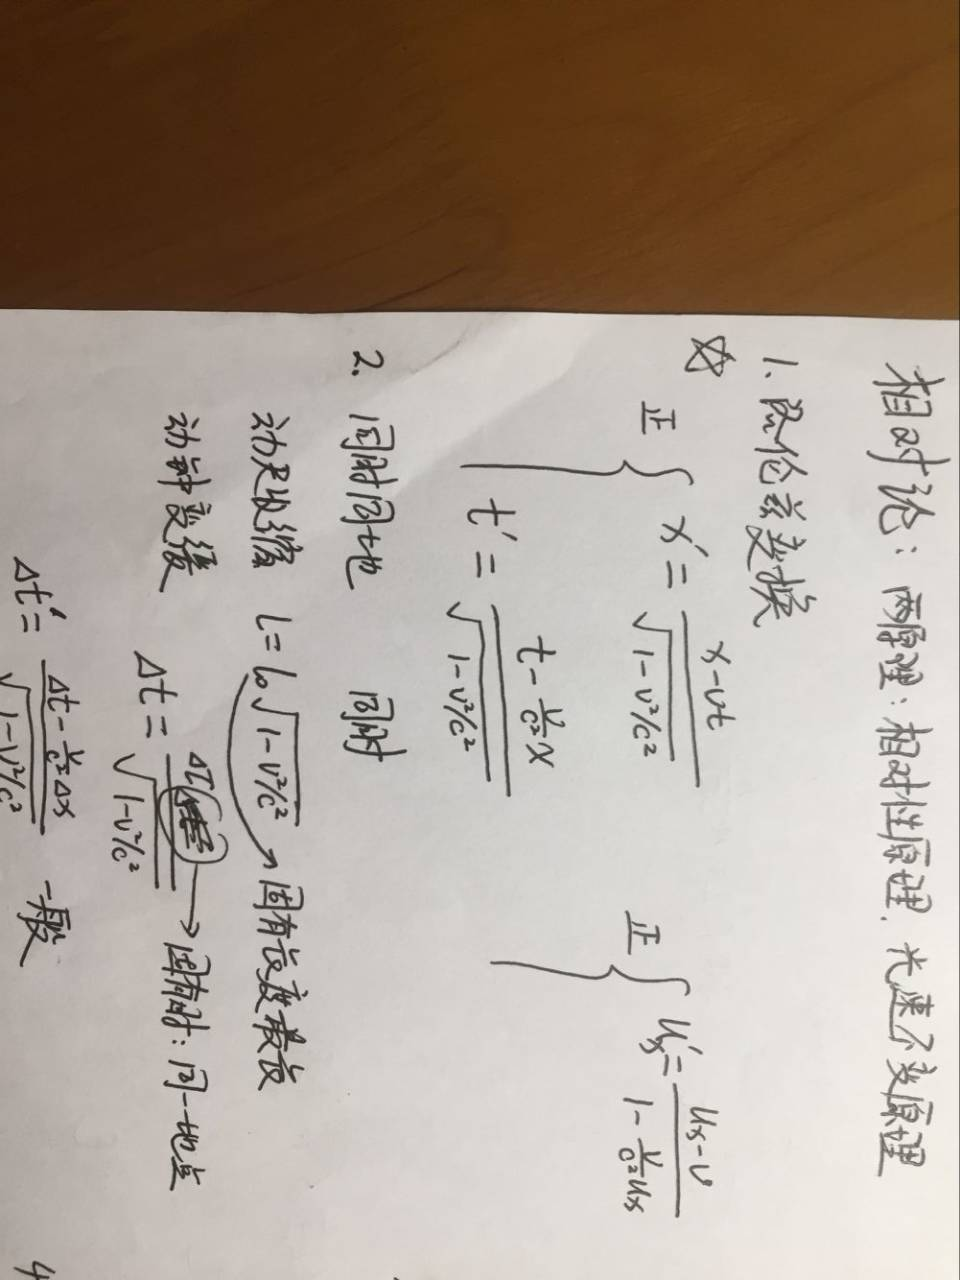 相对论：两原理：相对性原理、光速不变原理
1、洛伦兹变换
☆ 正 { x' = (x-vt)/√(1-v²/c²)
t' = (t - (v/c²)x)/√(1-v²/c²)
正 { u'x = (ux-v)/(1 - (v/c²)ux)
2. 同时同地 同时
动尺收缩 L = L₀√(1-v²/c²) → 固有长度最长
动钟变缓 Δt = Δτ/√(1-v²/c²) → 固有时：同一地点
Δt' = (Δt - (v/c²)Δx)/√(1-v²/c²) 一般
4